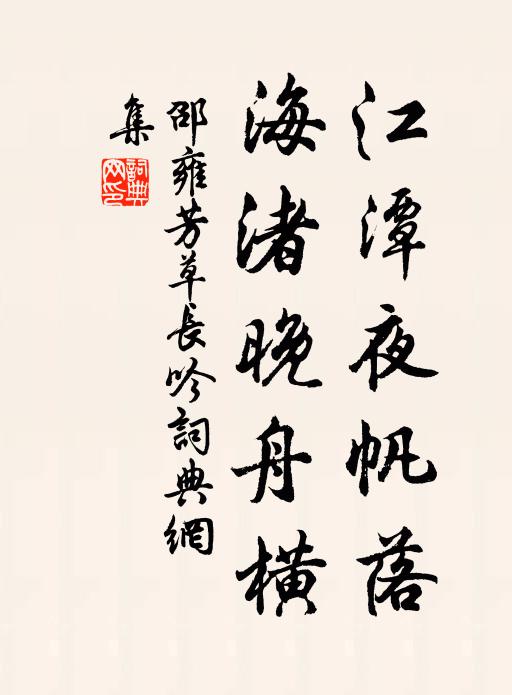 江潭夜帆落
海渚晚舟橫
邵雍芳草長吟詞典網
集
詞典
网印